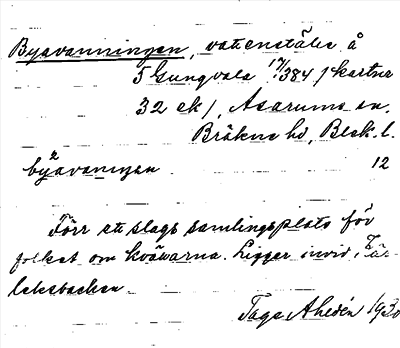 Bysvanningen, vattenställe å
5 Gungvala 17/384 /kartnr
32 ek/, Asarums sn.
Bräkne hd, Blek. l.
by²svaningen 12
Förr ett slags samlingsplats för
folket om kvällarna. Ligger invid, Fär-
leksbacken.
Tage Ahedén 1930